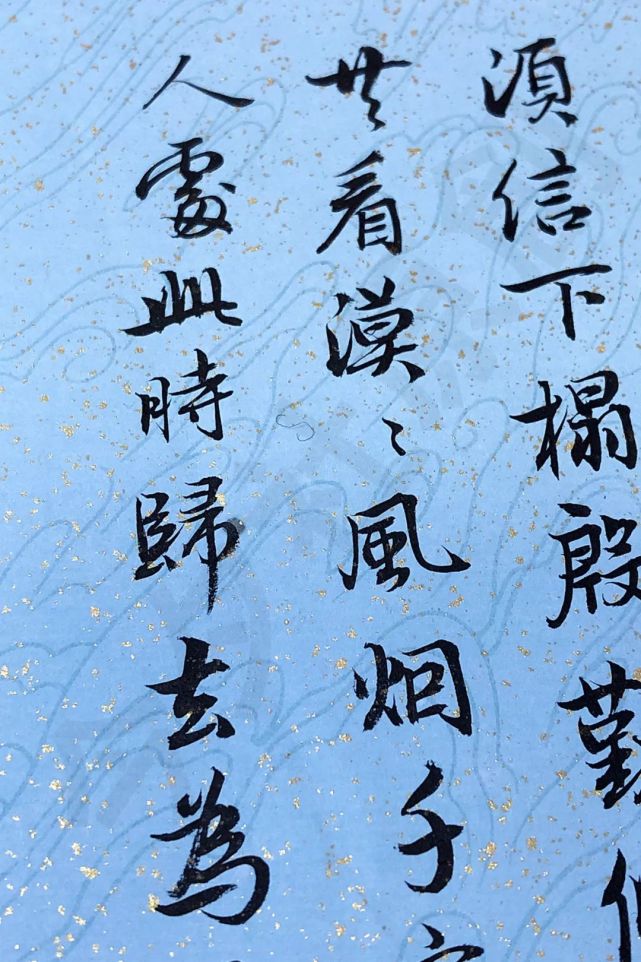 湏信下榻殷勤
共看漠〻風烟千
人處此時歸去為